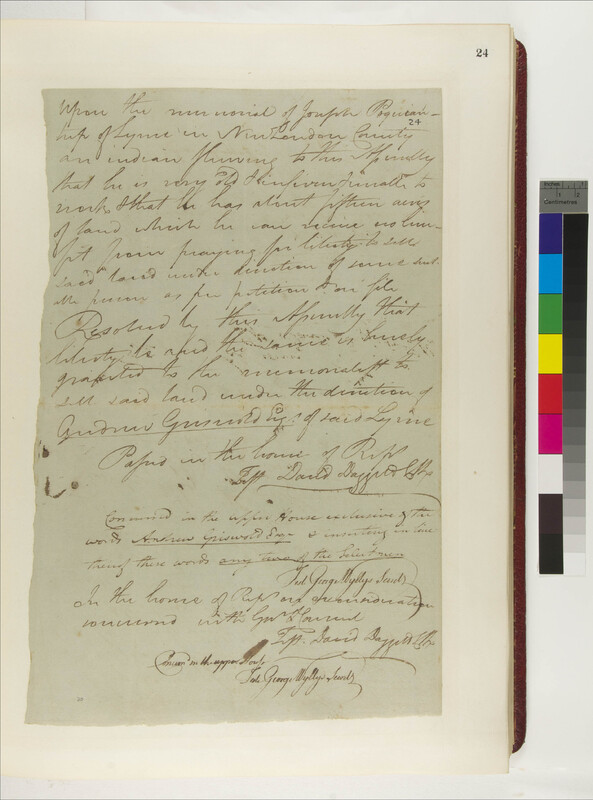 24
Upon the memorial of Joseph
24
of Lyme in New London County
an indian shewing to this Assembly
that he is very old & infirm & unable to
work & that he has about fifteen acres
of land which he can receive no bene-
fit from praying for liberty to sell
said land under direction of some suit
able person as per petition on file
Resolved by this Assembly that
liberty be and the same is hereby
granted to the memorialist to
sell said land under the direction of
Andrew Griswold Esqr. of said Lyme
Passed in the house of Reps
Test. David Daggett Clk
Concurred in the upper House exclusive of the
words Andrew Griswold Esqr & inserting in lieu
thereof these words any two of the Selectmen
Test George Wyllys Secrety
In the house of Reps on reconsideration
concurred with the Govr & Council
Test. David Daggett Clk
Concurd in the upper House
Test. George Wyllys Secrety
Inches
Centimetres